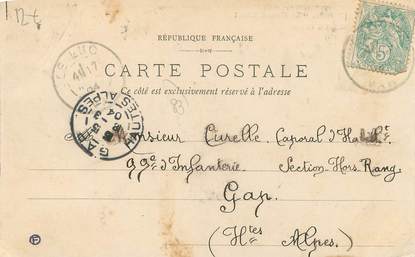 12€
RÉPUBLIQUE FRANÇAISE
CARTE POSTALE
Ce côté est exclusivement réservé à l'adresse
LE LUC
VAR
5
GAP
HAUTES ALPES
04
Monsieur Curelle, Caporal d'
99e d'Infanterie. Section Hors Rang
Gap
(Htes Alpes)